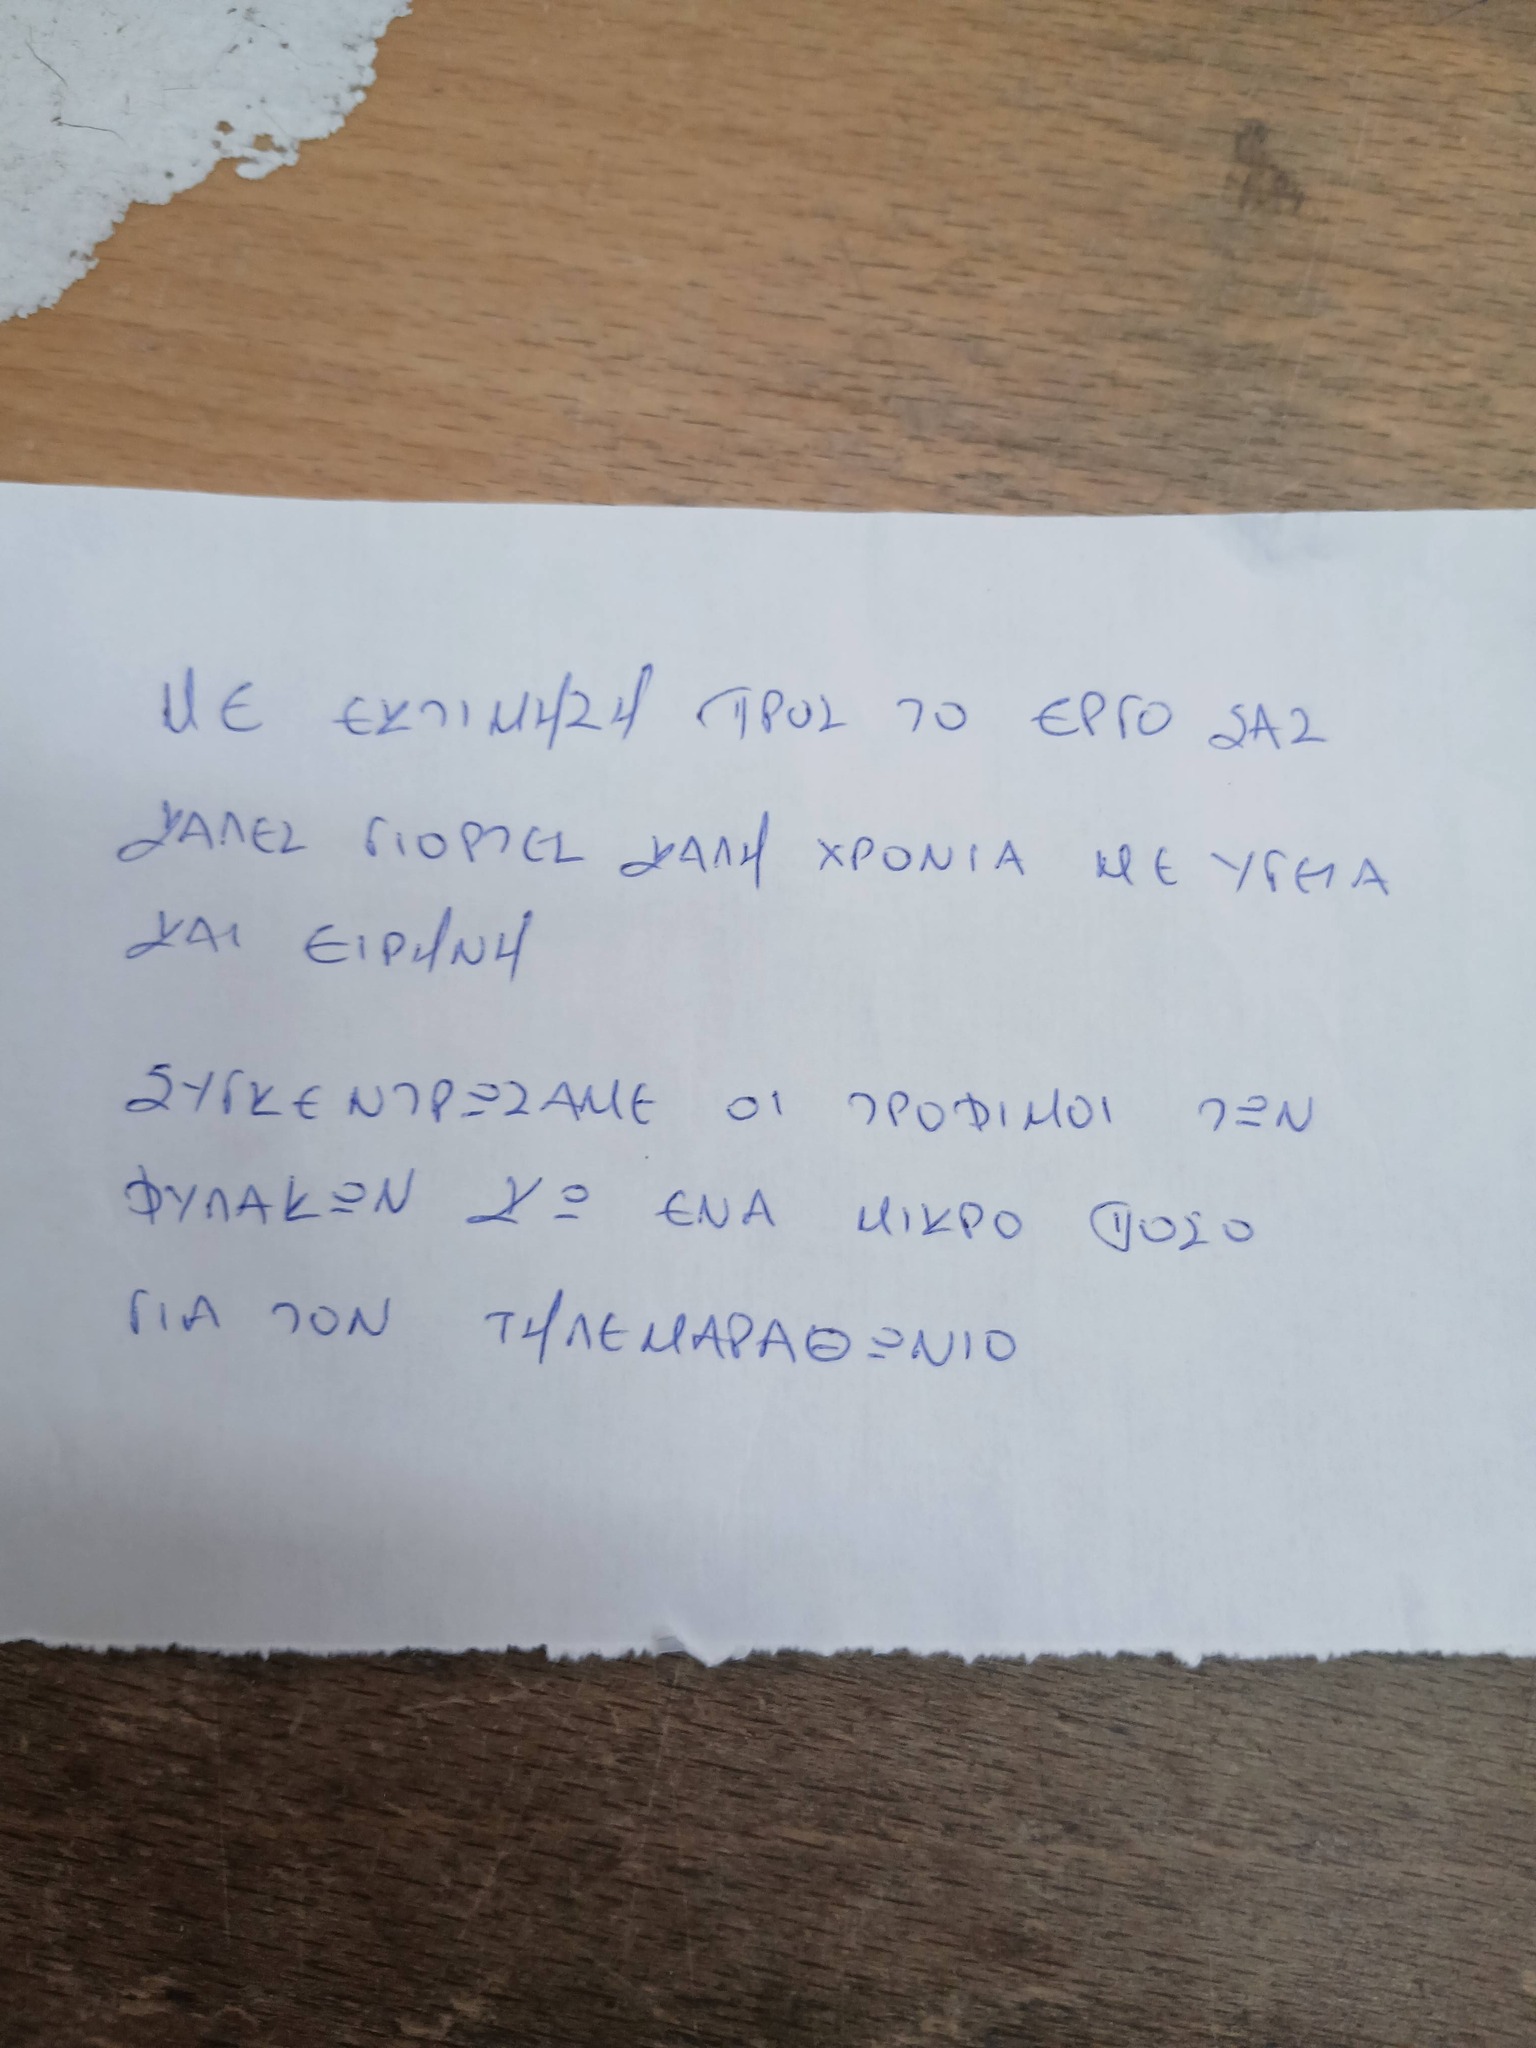 ΜΕ ΕΚΤΙΜΗΣΗ ΠΡΟΣ ΤΟ ΕΡΓΟ ΣΑΣ
ΚΑΛΕΣ ΓΙΟΡΤΕΣ ΚΑΛΗ ΧΡΟΝΙΑ ΜΕ ΥΓΕΙΑ
ΚΑΙ ΕΙΡΗΝΗ
ΣΥΓΚΕΝΤΡΩΣΑΜΕ ΟΙ ΤΡΟΦΙΜΟΙ ΤΩΝ
ΦΥΛΑΚΩΝ ΚΩ ΕΝΑ ΜΙΚΡΟ ΠΟΣΟ
ΓΙΑ ΤΟΝ ΤΗΛΕΜΑΡΑΘΩΝΙΟ